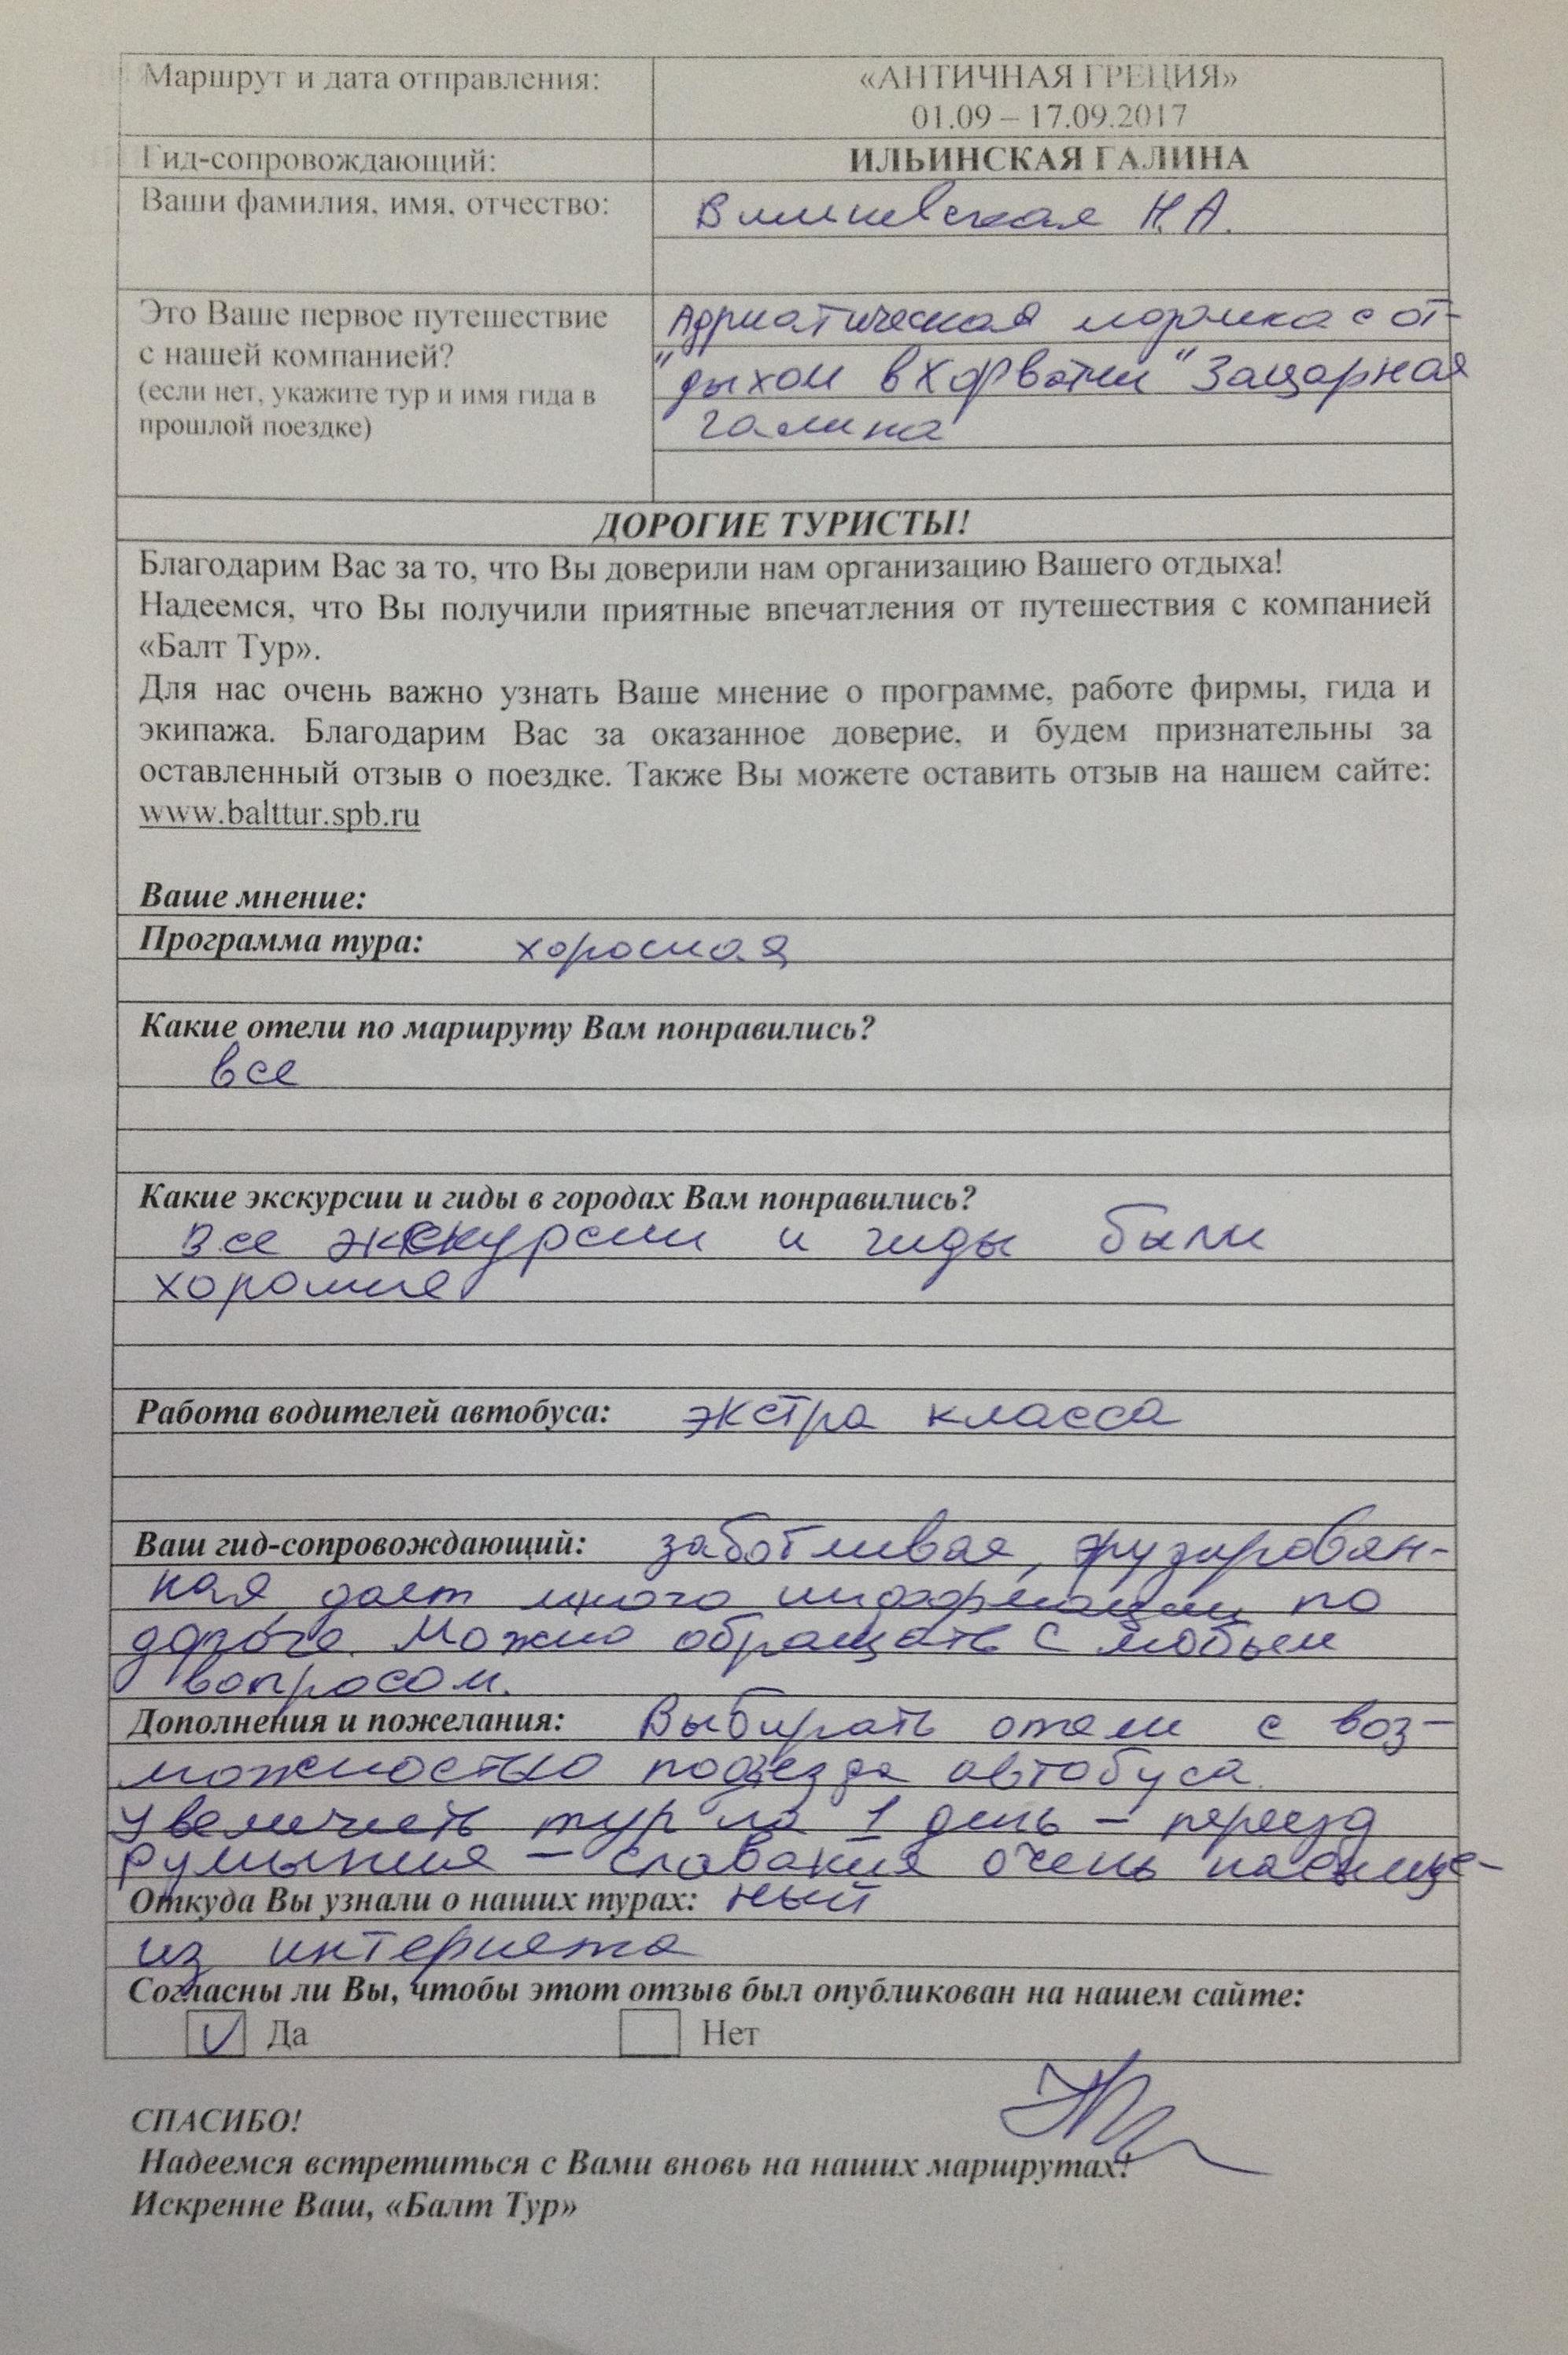 Маршрут и дата отправления: «АНТИЧНАЯ ГРЕЦИЯ»
01.09 – 17.09.2017
Гид-сопровождающий: ИЛЬИНСКАЯ ГАЛИНА
Ваши фамилия, имя, отчество: Вишневская Н.А.
Это Ваше первое путешествие
с нашей компанией?
(если нет, укажите тур и имя гида в
прошлой поездке)
Адриатическая с от-
"дыхом в Хорватии" Зацарная
Галина
ДОРОГИЕ ТУРИСТЫ!
Благодарим Вас за то, что Вы доверили нам организацию Вашего отдыха!
Надеемся, что Вы получили приятные впечатления от путешествия с компанией
«Балт Тур».
Для нас очень важно узнать Ваше мнение о программе, работе фирмы, гида и
экипажа. Благодарим Вас за оказанное доверие, и будем признательны за
оставленный отзыв о поездке. Также Вы можете оставить отзыв на нашем сайте:
www.balttur.spb.ru
Ваше мнение:
Программа тура: хорошая
Какие отели по маршруту Вам понравились?
все
Какие экскурсии и гиды в городах Вам понравились?
Все экскурсии и гиды были
хорошие
Работа водителей автобуса: экстра класса
Ваш гид-сопровождающий: заботливая,
дает много информации по
дороге. Можно с любым
вопросом.
Дополнения и пожелания: Выбирать отели с воз-
можностью подъезда автобуса.
Увеличить тур на 1 день – переезд
Румыния – Словакия очень насыще-
Откуда Вы узнали о наших турах: ный
из интернета
Согласны ли Вы, чтобы этот отзыв был опубликован на нашем сайте:
Да Нет
СПАСИБО!
Надеемся встретиться с Вами вновь на наших маршрутах!
Искренне Ваш, «Балт Тур»